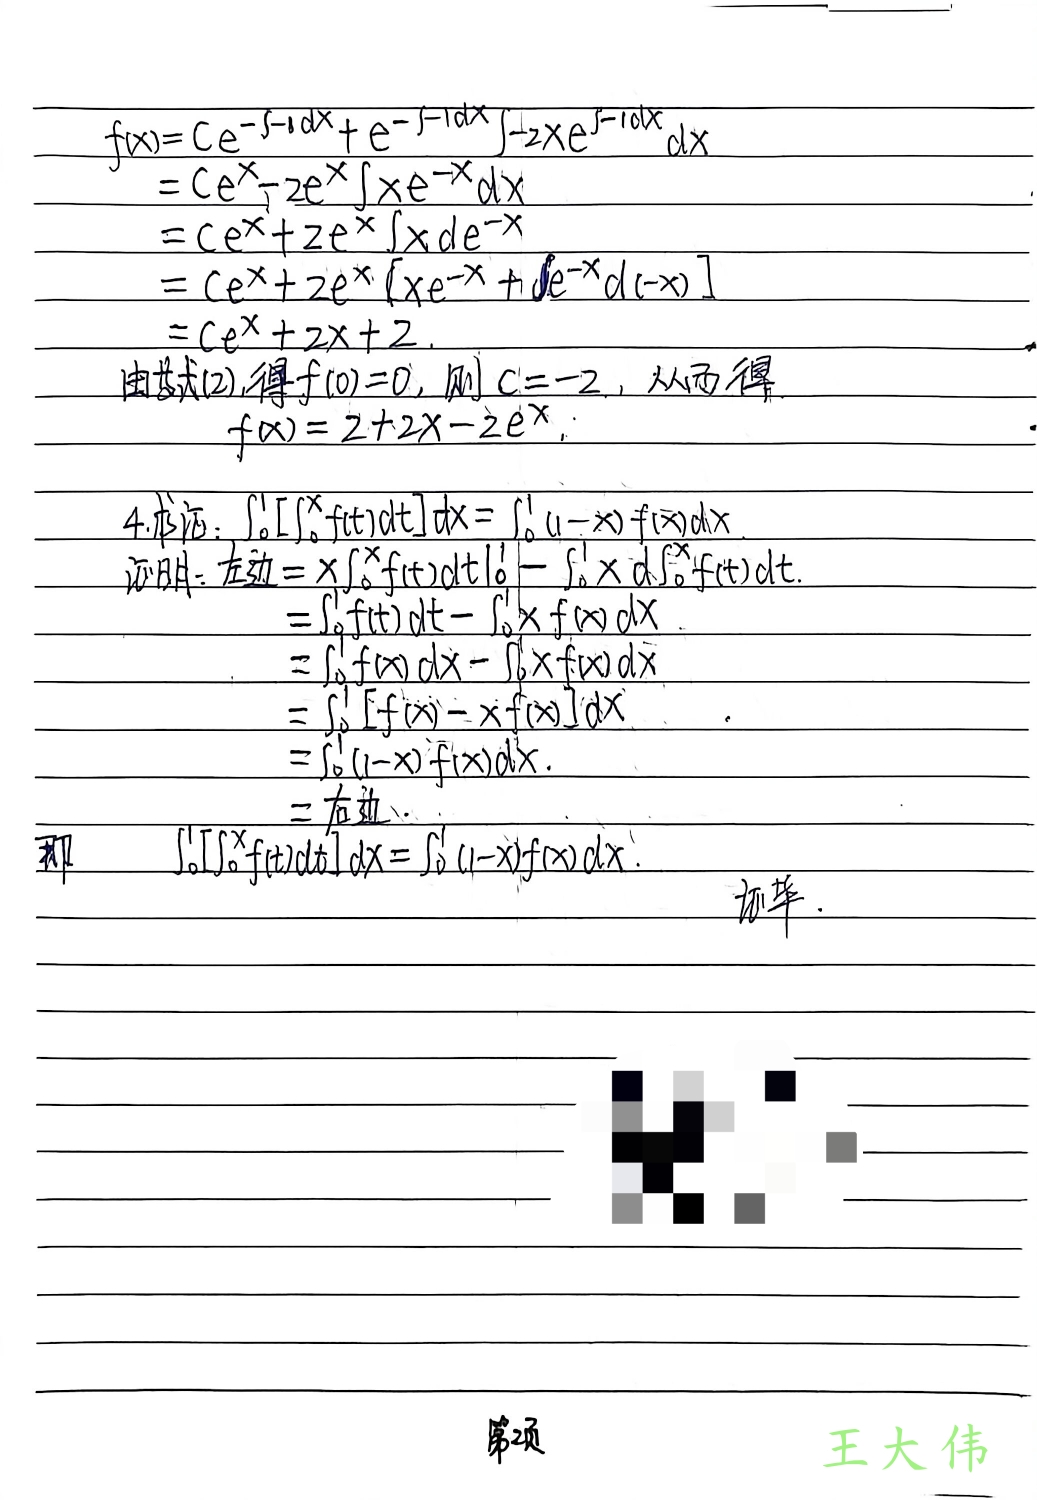 f(x)=Ce^{-∫-1dx}+e^{-∫-1dx}∫-2xe^{∫-1dx}dx
=Ce^x-2e^x∫xe^{-x}dx
=Ce^x+2e^x∫xde^{-x}
=Ce^x+2e^x[xe^{-x}+∫e^{-x}d(-x)]
=Ce^x+2x+2.
由等式(2),得f(0)=0,则C=-2,从而得
f(x)=2+2x-2e^x.
4.求证:∫₀¹[∫₀ˣf(t)dt]dx=∫₀¹(1-x)f(x)dx
证明:左边=x∫₀ˣf(t)dt|₀¹-∫₀¹xd∫₀ˣf(t)dt.
=∫₀¹f(t)dt-∫₀¹xf(x)dx.
=∫₀¹f(x)dx-∫₀¹xf(x)dx
=∫₀¹[f(x)-xf(x)]dx
=∫₀¹(1-x)f(x)dx.
=右边.
即 ∫₀¹[∫₀ˣf(t)dt]dx=∫₀¹(1-x)f(x)dx.
证毕.
第2页
王大伟